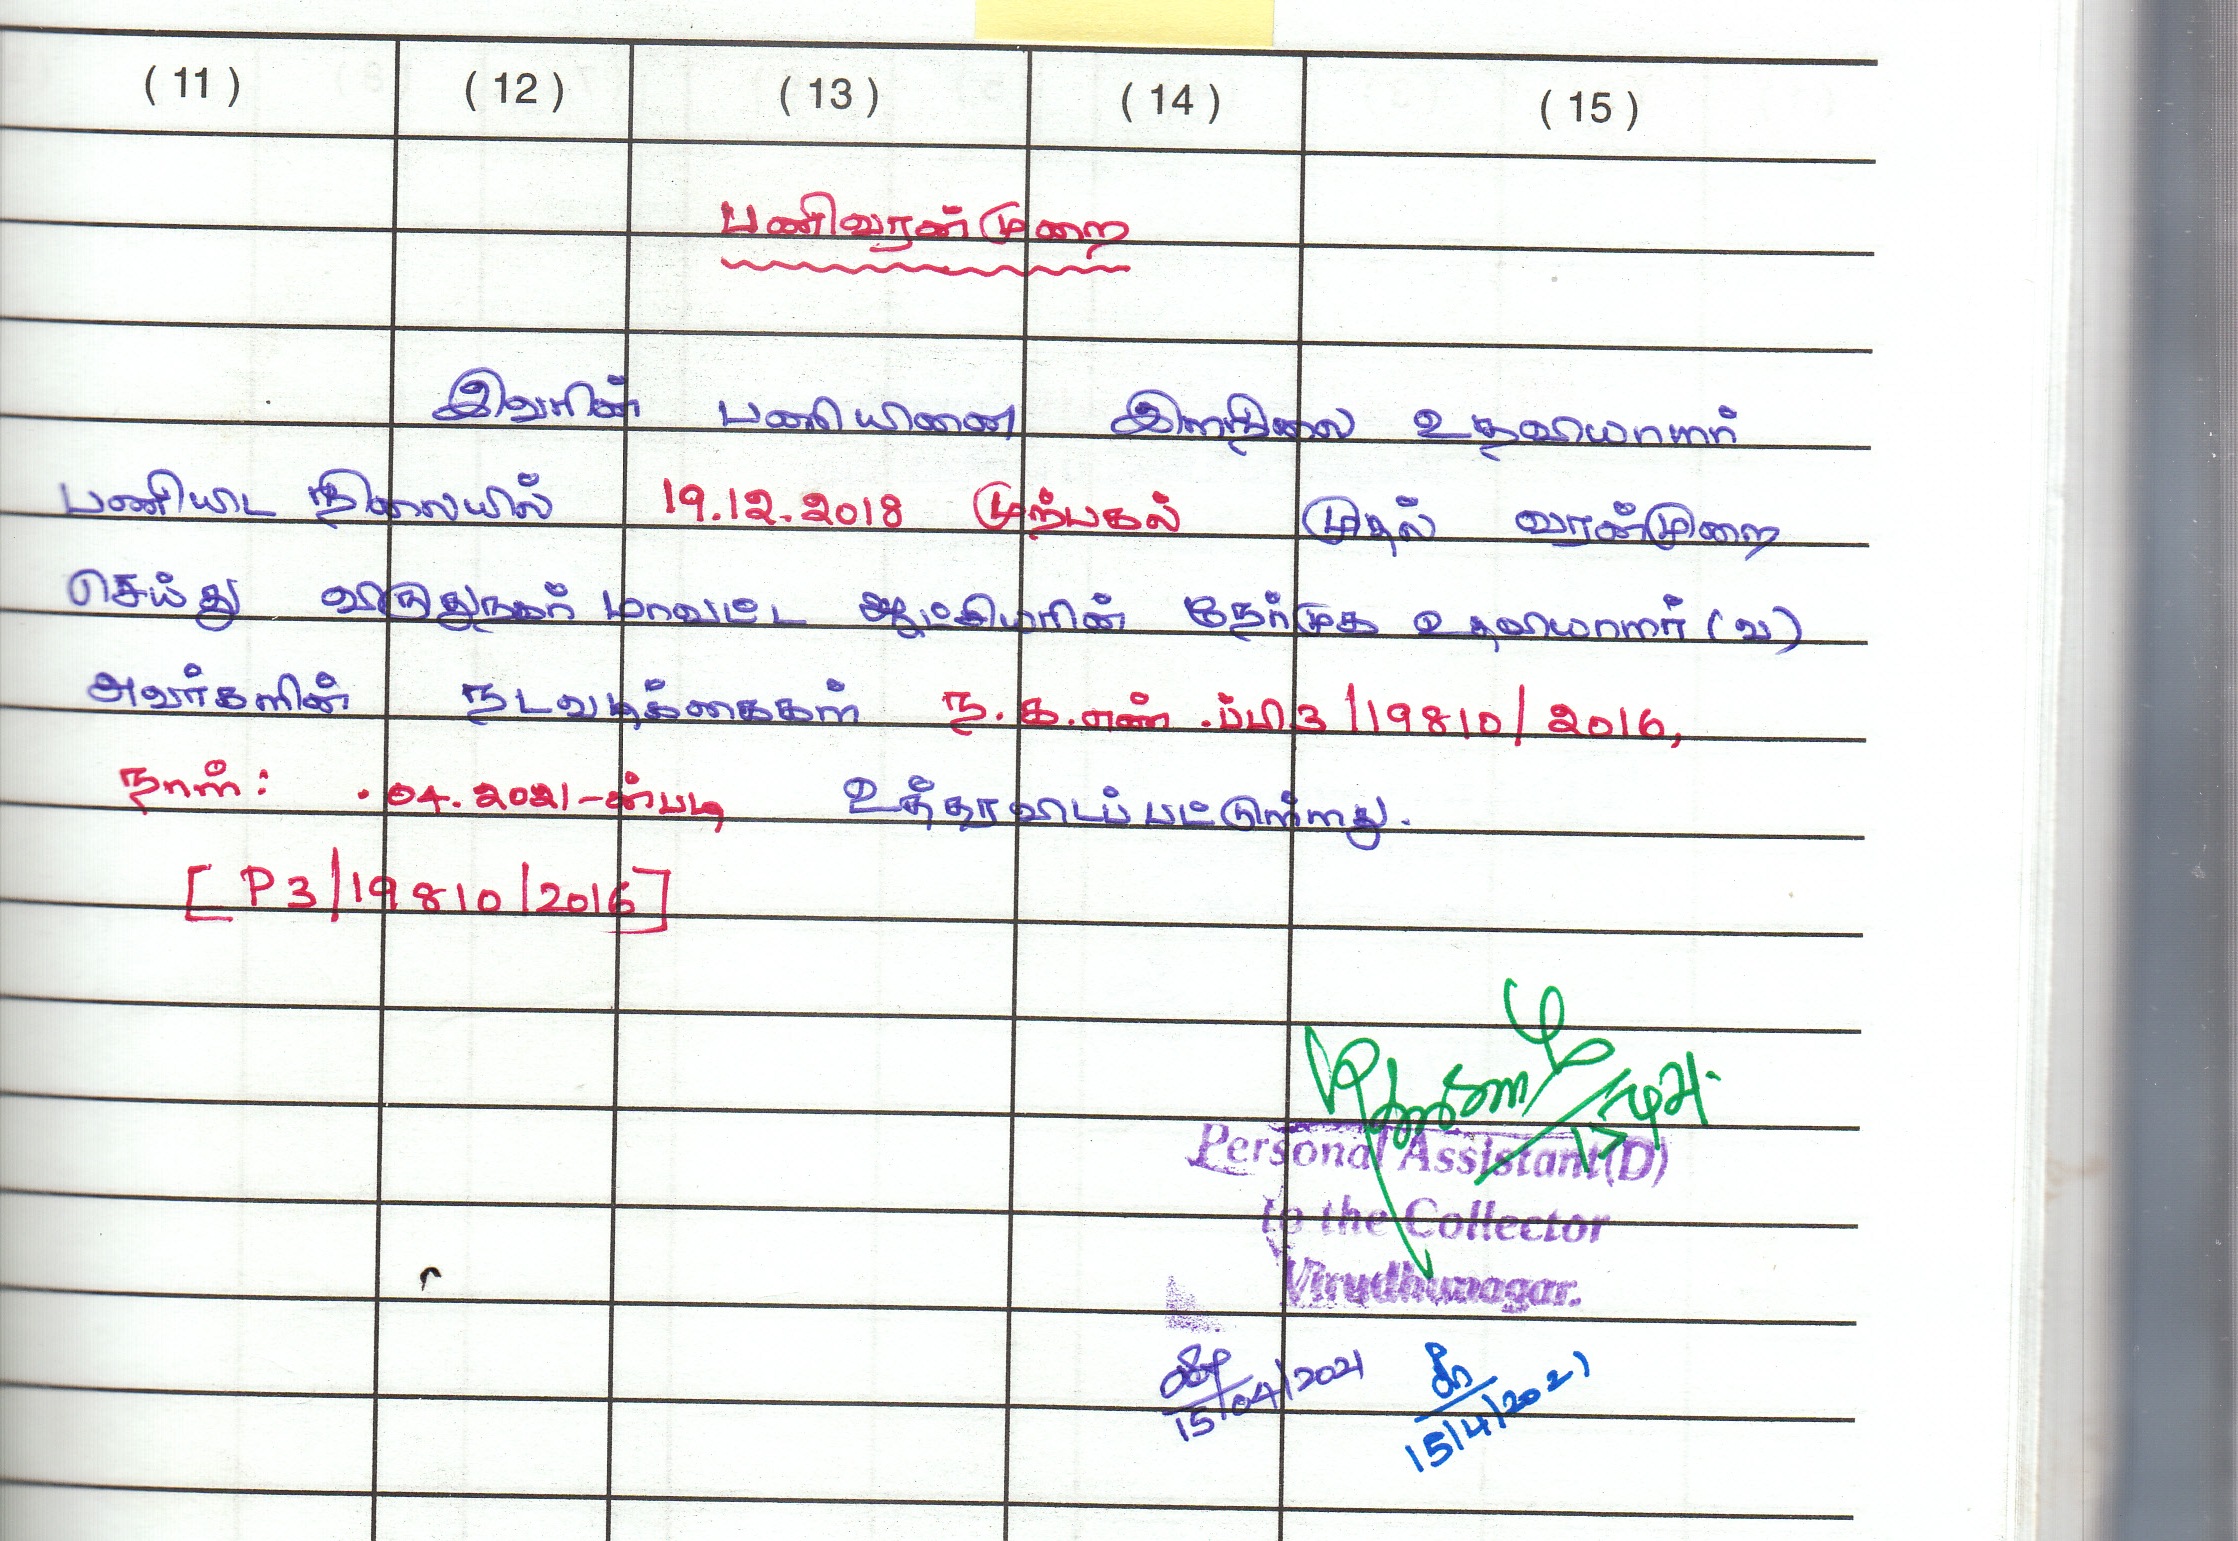 (11) (12) (13) (14) (15)
பணிவரன்முறை
இவரின் பணியினை இளநிலை உதவியாளர்
பணியிட நிலையில் 19.12.2018 முற்பகல் முதல் வரன்முறை
செய்து விருதுநகர் மாவட்ட ஆட்சியரின் நேர்முக உதவியாளர் (வ)
அவர்களின் நடவடிக்கைகள் ந.க.எண்.ப்பி3/19810/2016,
நாள்: .04.2021-ன்படி உத்தரவிடப்பட்டுள்ளது.
[P3/19810/2016]
Personal Assistant(D)
to the Collector
Virudhunagar.
15/04/2021 15/4/2021